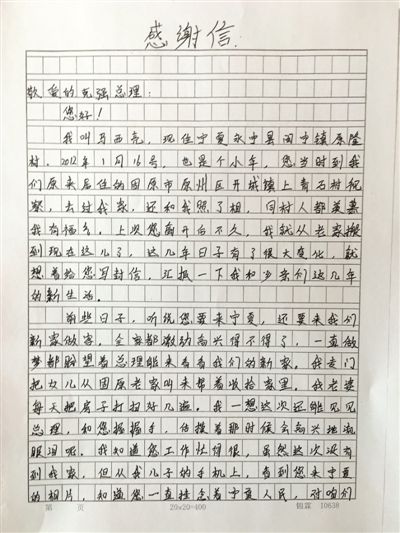 感谢信:
敬爱的克强总理:
您好!
我叫马西亮,现住宁夏永宁县闽宁镇原隆
村。2012年1月16号,也是个小年,您当时到我
们原来居住的固原市原州区开城镇上青石村视
察,去过我家,还和我照了相,同村人都羡慕
我有福分。上次您离开后不久,我就从老家搬
到现在这儿了,这几年日子有了很大变化,就
想着给您写封信,汇报一下我和乡亲们这几年
的新生活。
前些日子,听说您要来宁夏,还要来我们
新家做客,全家都激动高兴得不得了,一直做
梦都盼望着总理能来看看我们的新家。我专门
把女儿从固原老家叫来帮着收拾家里,我老婆
每天把房子打扫好几遍。我一想这次还能见见
总理,和您握握手,估摸着那时候会高兴地流
眼泪呢。我知道您工作忙得很,虽然这次没有
到我家,但从我儿子的手机上,看到您来宁夏
的相片,知道您一直挂念着宁夏人民,对咱们
第 页 20×20=400 10638